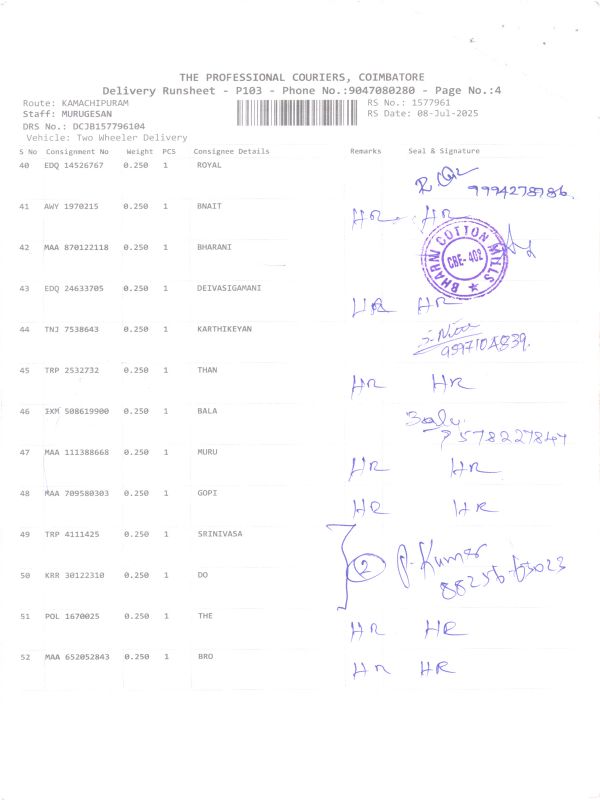 THE PROFESSIONAL COURIERS, COIMBATORE
Delivery Runsheet - P103 - Phone No.:9047080280 - Page No.:4
Route: KAMACHIPURAM RS No.: 1577961
Staff: MURUGESAN RS Date: 08-Jul-2025
DRS No.: DCJB157796104
Vehicle: Two Wheeler Delivery
S No Consignment No Weight PCS Consignee Details Remarks Seal & Signature
40 EDQ 14526767 0.250 1 ROYAL
9994278786.
41 AWY 1970215 0.250 1 BNAIT HR. HR
42 MAA 870122118 0.250 1 BHARANI
BHARNI COTTON MILLS
CBE-402
43 EDQ 24633705 0.250 1 DEIVASIGAMANI HR HR
44 TNJ 7538643 0.250 1 KARTHIKEYAN
45 TRP 2532732 0.250 1 THAN HR HR
46 IXM 508619900 0.250 1 BALA
47 MAA 111388668 0.250 1 MURU HR HR
48 MAA 709580303 0.250 1 GOPI HR HR
49 TRP 4111425 0.250 1 SRINIVASA
2 P. Kumar
50 KRR 30122310 0.250 1 DO
51 POL 1670025 0.250 1 THE HR HR
52 MAA 652052843 0.250 1 BRO HR HR